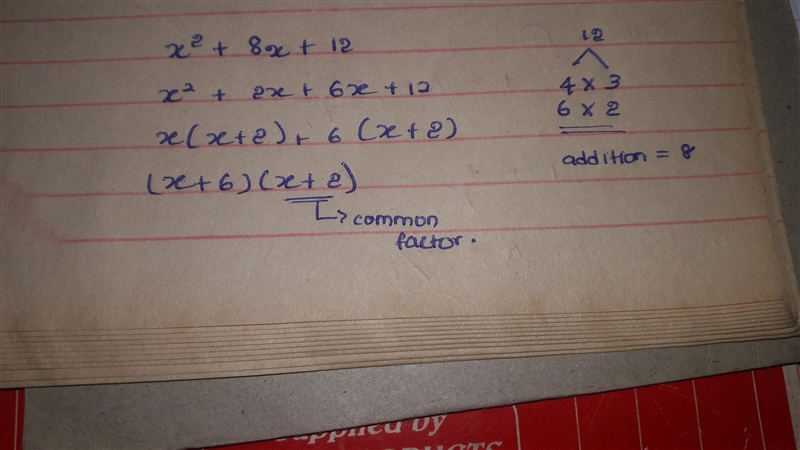 x² + 8x + 12
x² + 2x + 6x + 12
x(x+2) + 6 (x+2)
(x+6)(x+2)
common
factor.
12
4 x 3
6 x 2
addition = 8
Supplied by
PRODUCTS